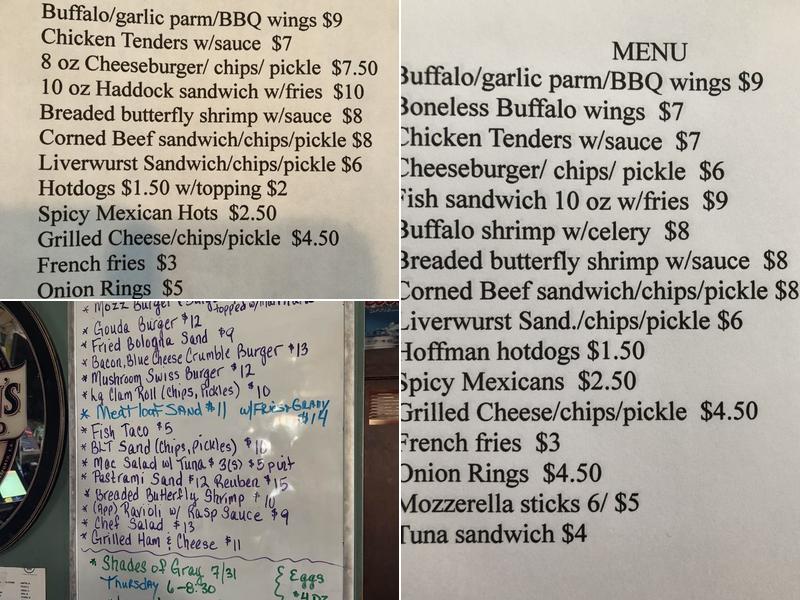 Buffalo/garlic parm/BBQ wings $9
Chicken Tenders w/sauce $7
8 oz Cheeseburger/ chips/ pickle $7.50
10 oz Haddock sandwich w/fries $10
Breaded butterfly shrimp w/sauce $8
Corned Beef sandwich/chips/pickle $8
Liverwurst Sandwich/chips/pickle $6
Hotdogs $1.50 w/topping $2
Spicy Mexican Hots $2.50
Grilled Cheese/chips/pickle $4.50
French fries $3
Onion Rings $5
* Mozz Burger
* Gouda Burger $12
* Fried Bologna Sand $9
* Bacon, Blue Cheese Crumble Burger $13
* Mushroom Swiss Burger $12
* Lg Clam Roll (Chips, Pickles) $10
* Meatloaf Sand $11 w/Fries + Gravy $14
* Fish Taco $5
* BLT Sand (Chips, pickles) $10
* Mac Salad w/ Tuna $3(s) $5 pint
* Pastrami Sand $12 Reuben $15
* Breaded Butterfly Shrimp $10
* (App) Ravioli w/ Rasp Sauce $9
* Chef Salad $13
* Grilled Ham & Cheese $11
* Shades of Gray 7/31
Thursday 6-8:30
Eggs
$4 DZ
MENU
Buffalo/garlic parm/BBQ wings $9
Boneless Buffalo wings $7
Chicken Tenders w/sauce $7
Cheeseburger/ chips/ pickle $6
Fish sandwich 10 oz w/fries $9
Buffalo shrimp w/celery $8
Breaded butterfly shrimp w/sauce $8
Corned Beef sandwich/chips/pickle $8
Liverwurst Sand./chips/pickle $6
Hoffman hotdogs $1.50
Spicy Mexicans $2.50
Grilled Cheese/chips/pickle $4.50
French fries $3
Onion Rings $4.50
Mozzerella sticks 6/ $5
Tuna sandwich $4